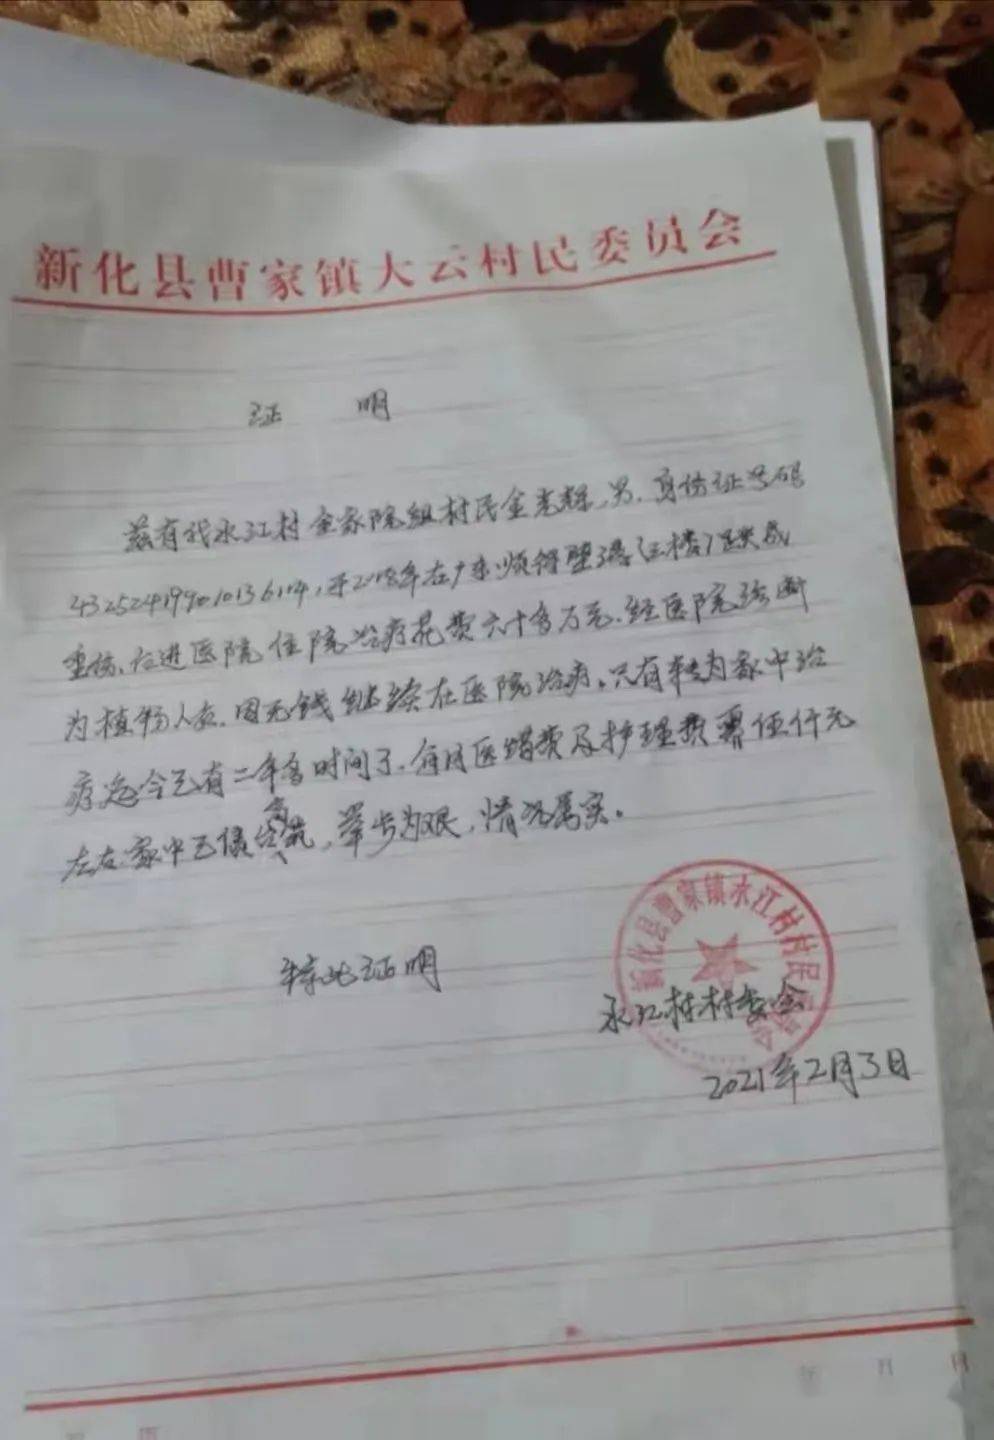 新化县曹家镇大云村民委员会
证 明
兹有我永江村金家院组村民金光辉,男,身份证号码
于2018年在广东顺得坠 (三楼)
重伤、右进医院住院治疗花费六十多万元.经医院诊断
为植物人员.因无钱继续在医院治病。只有转为家中治
疗迄今已有二年多时间了.每月医 费及护理费需伍仟元
左右.家中已债台高筑,举步为艰,情况属实。
特此证明
新化县曹家镇永江村村民委员会
永江村村委会
2021年2月3日
年 月 日